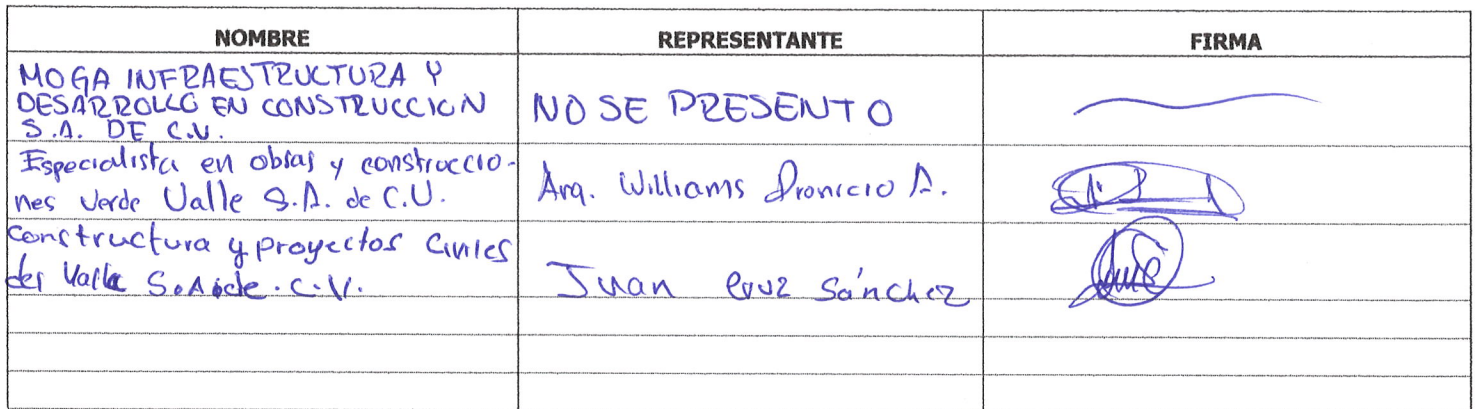 NOMBRE REPRESENTANTE FIRMA
MOGA INFRAESTRUCTURA Y
DESARROLLO EN CONSTRUCCION
S.A. DE C.V.
NO SE PRESENTO
Especialista en obras y construccio-
nes Verde Valle S.A. de C.V.
Arq. Williams Dionicio A.
Constructura y proyectos Civiles
del Valle S.A. de. C.V.
Juan Cruz Sánchez